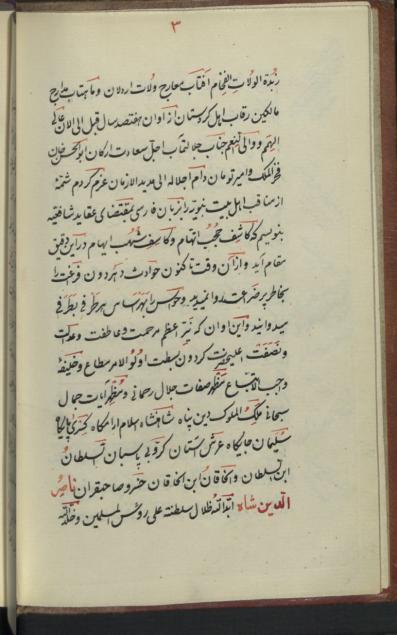 ۳
زبدة الولات الفخام آفتاب معارج ولات اردلان و ماهتاب مدارج
مالکین رقاب اهل کردستان از اوان هفتصد سال قبل الی الآن عالی
الهمم و والی النعم جناب جلالتمآب اجل سعادت ارکان ابوالحسن خان
فخرالملک و امیر تومان دام اجلاله الی مدید الازمان عزم کردم شمهٔ
از مناقب اهل بیت نبویه را بزبان فارسی بمقتضای عقاید شافعیه
بنویسم که کاشف حجب اتهام و کاسف شهب ابهام در این دقیق
مقام آید و از آن وقت تا کنون حوادث دهر دون فرغت را
بخاطر پر ضرعت روا نمیدید و حواس را هر ساس هر طرفی بطرفی
میدوانید و این اوان که نیر اعظم مرحمت و عاطفت و معدلت
و نصفت اعلیحضرت کردون بسطت اولو الامر مطاع و خلیفهٔ
واجب الاتباع مظهر صفات جلال رحمانی و مظهر آیات جمال
سبحانی ملک الملوک دین پناه شاهنشاه اسلام آرامگاه کسری پایگاه
سلیمان جایگاه عرش آستان کروبی پاسبان السلطان
ابن السلطان و الخاقان ابن الخاقان خسرو صاحبقران ناصر
الدین شاه ابد الله ظلال سلطنته علی رؤس المسلمین و خلد الله